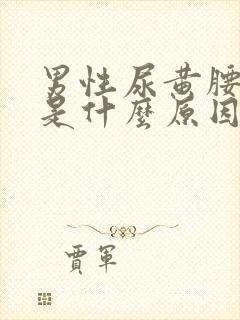 男性尿黄腰
是什麼原因
賈軍